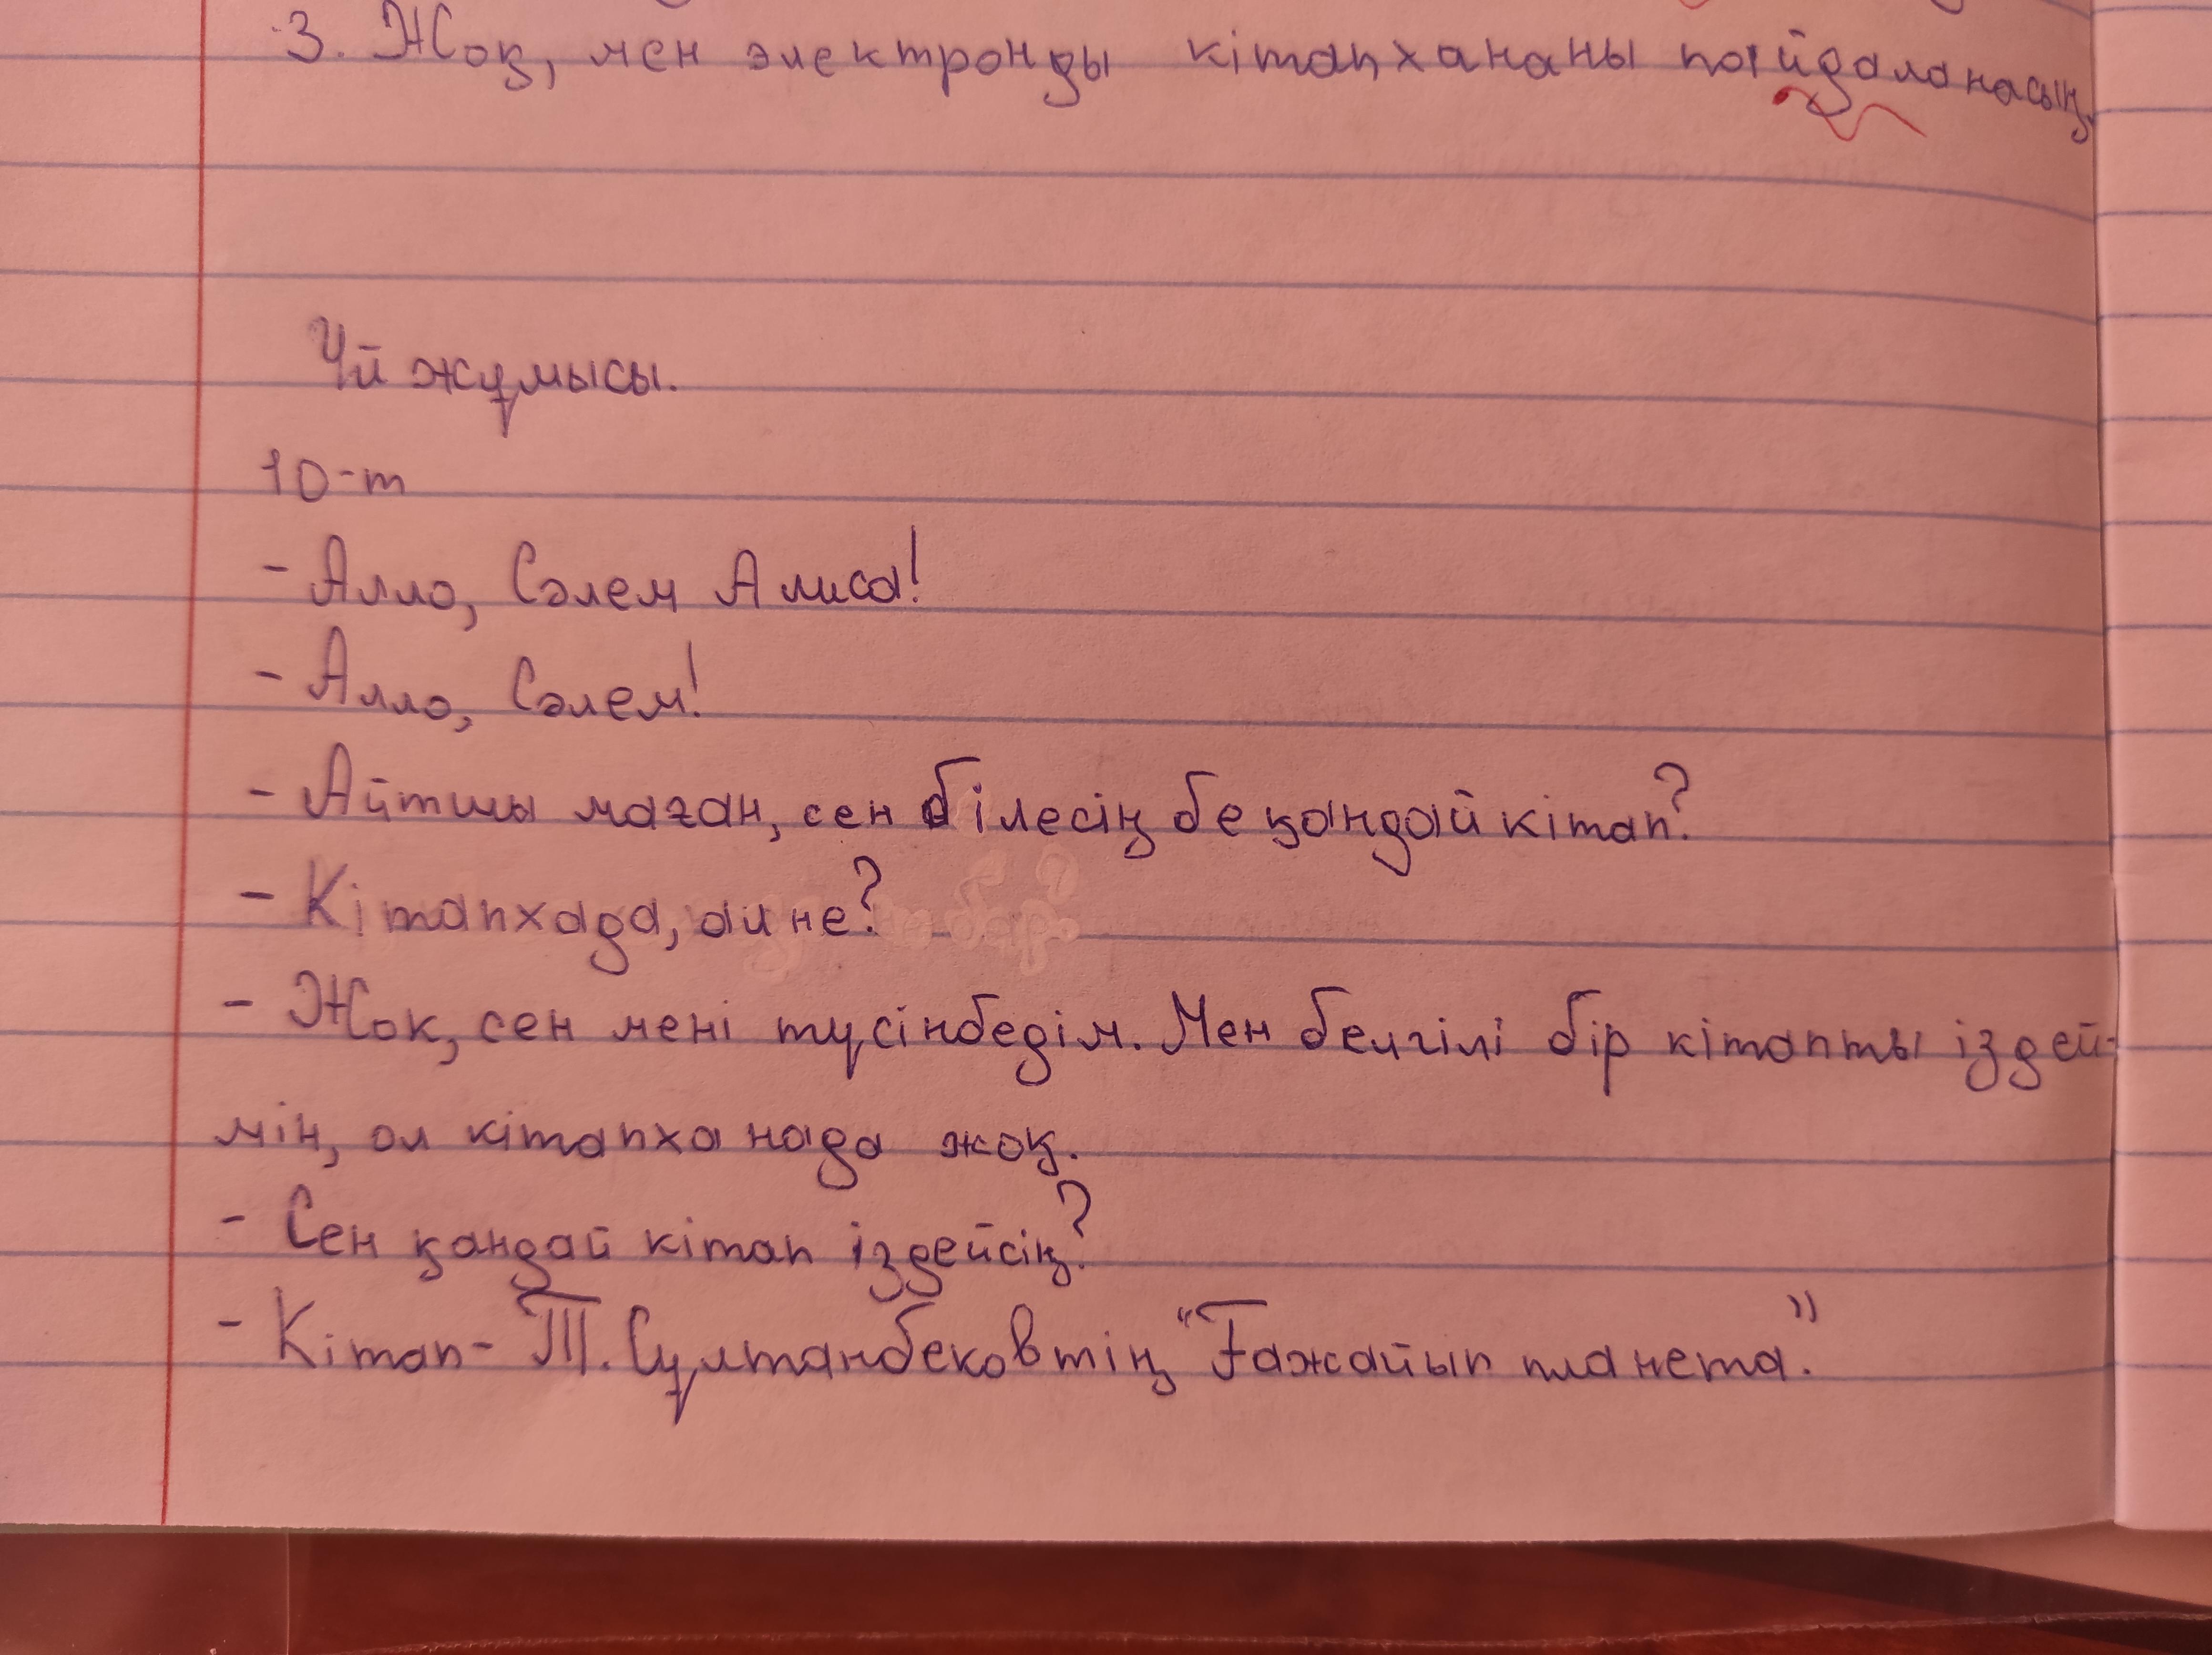 3. Жоқ, мен электронды кітапхананы пайдаланасың.
Үй жұмысы.
10-т
- Алло, Сәлем Алиса!
- Алло, Сәлем!
- Айтшы маған, сен білесің бе қандай кітап?
- Кітапхада, ал не?
- Жок, сен мені түсінбедім. Мен белгілі бір кітапты іздей-
мін, ол кітапханада жоқ.
- Сен қандай кітап іздейсің?
- Кітап- Т. Сұлтанбековтің "Ғажайып планета."